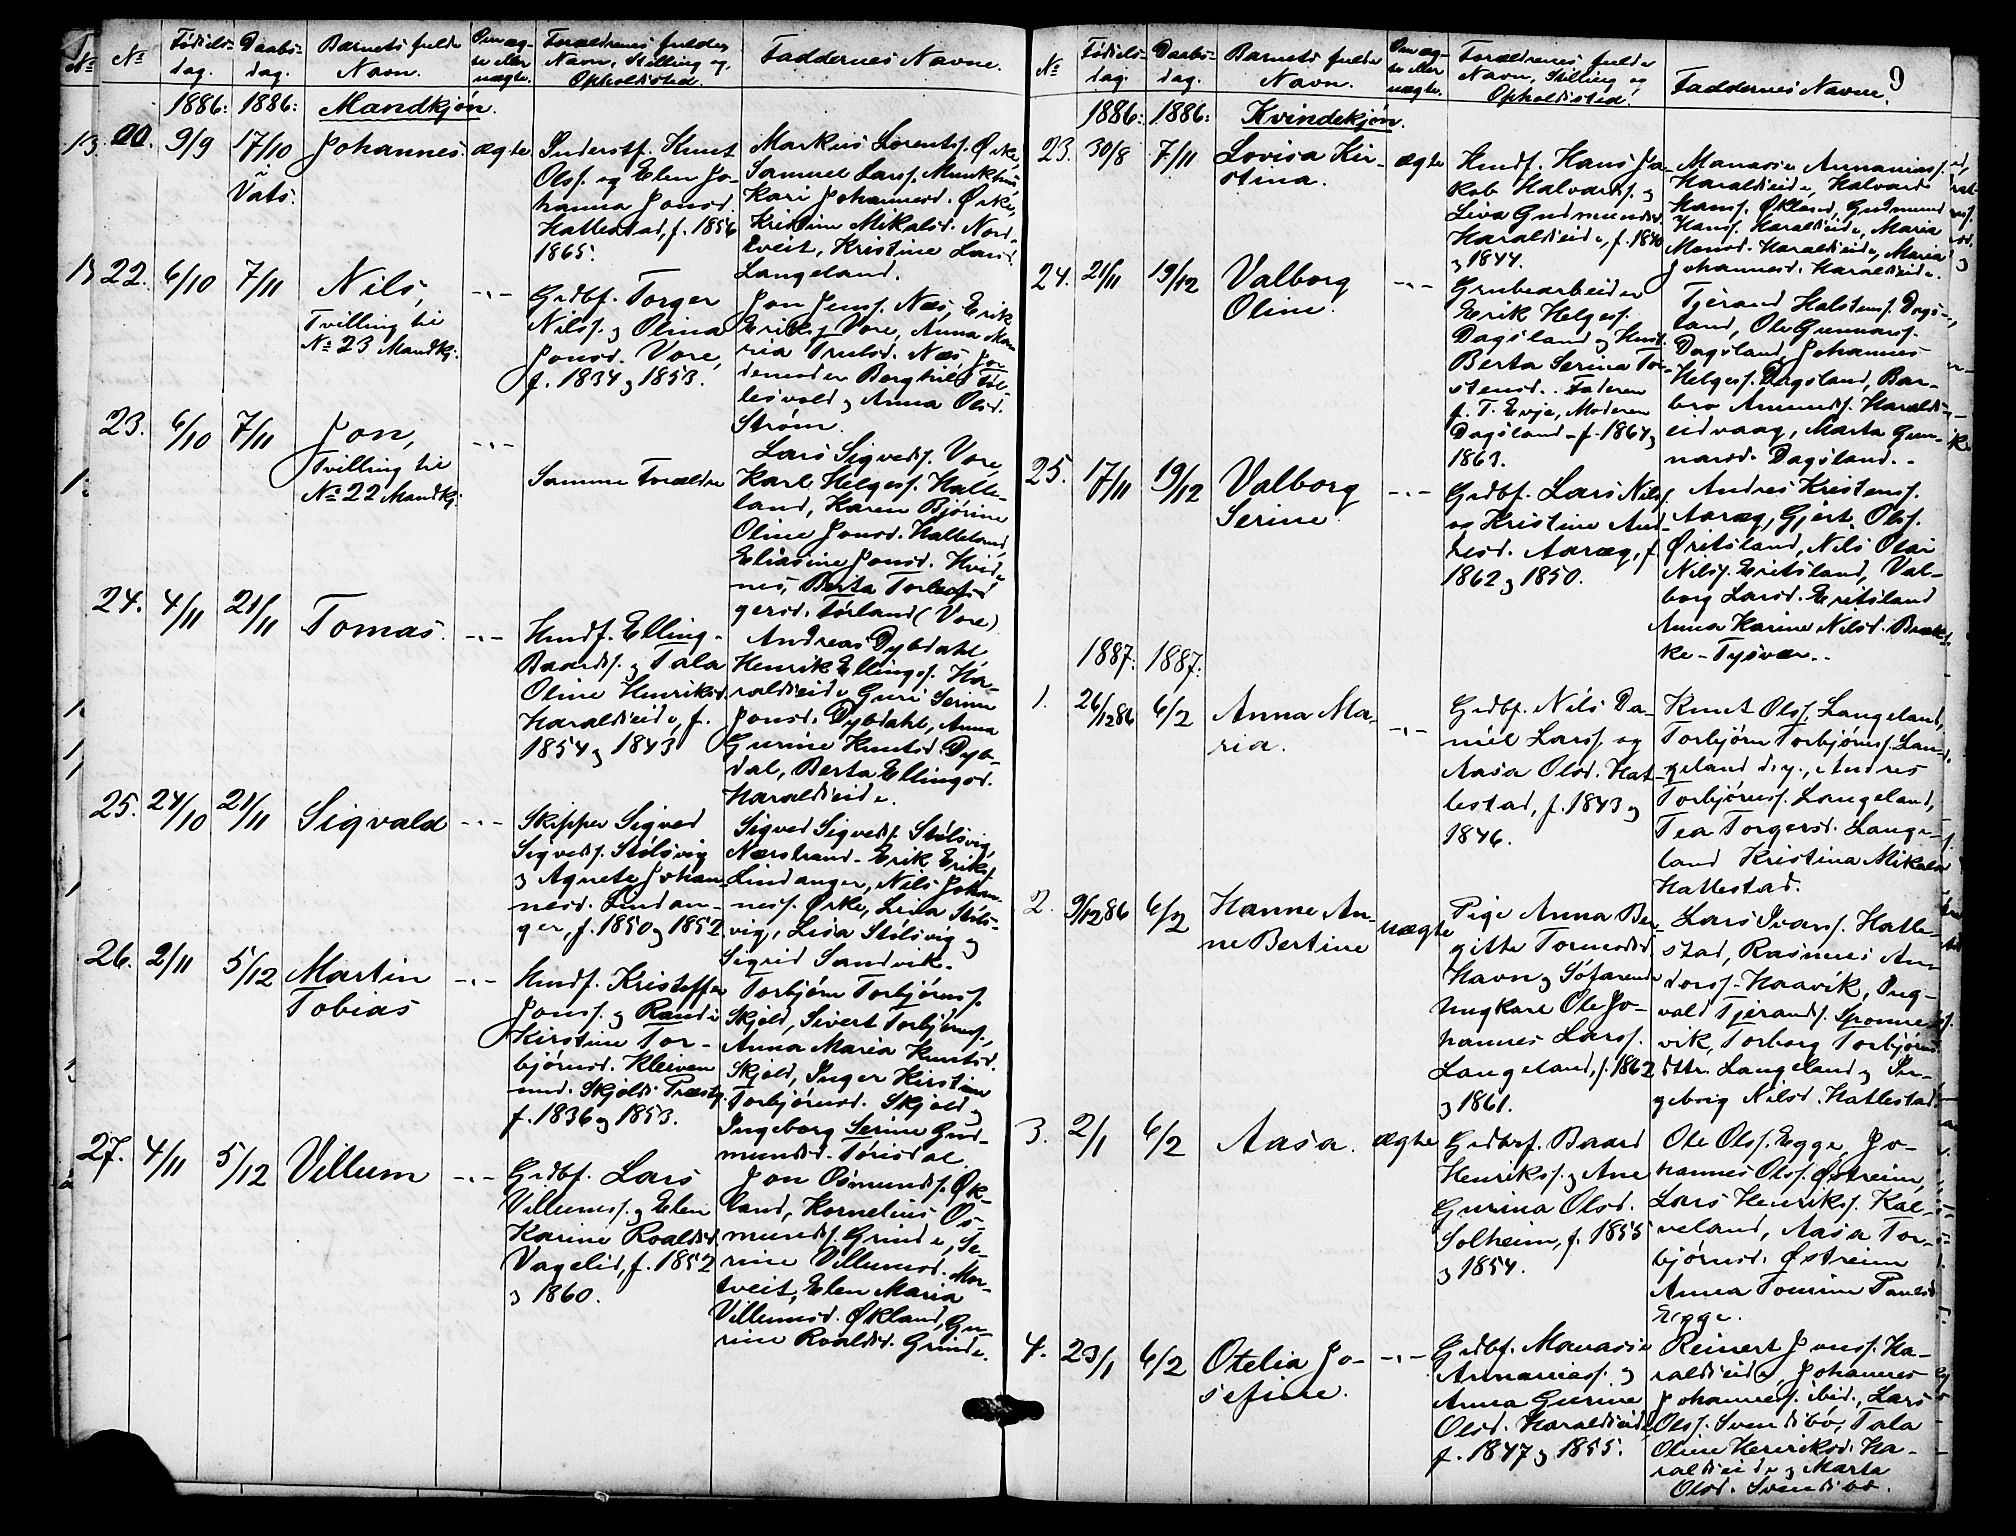 No
Fødsels-
dag.
Daabs-
dag.
Barnets fulde
Navn.
Om æg-
te eller
uægte.
Forældrenes fulde
Navn, Stilling og
Opholdssted.
Faddernes Navne.
1886: 1886: Mandkjøn.
9/9
17/10
Vats.
Johannes.
ægte
Olss. og Elen Jo-
hanna Jonsd.
Hattestad, f. 1856
1865.
Markus Lorents. Ørke,
Samuel Larss. Munkhus,
Kari Johannesd. Ørke,
Kristine Mikalsd. Nord-
tveit, Kristine Larsd.
Langeland.
22.
6/10
7/11
Nils,
Tvilling til
No 23 Mandkj.
-"-
Grdbf. Torger
Nilss. og Olina
Jonsd. Vore,
f. 1834 og 1853.
Jon Jenss. Næs, Erik
Eriks. Vore, Anna Ma-
ria Trulsd. Næs, Jor-
demoder Berghild Føl-
lesvold og Anna Olsd.
Strøm.
23.
6/10
7/11
Jon,
Tvilling til
No 22 Mandkj.
-"-
Samme Forældre
Lars Sigveds. Vore,
Karl Helges. Halle-
land, Karen Bjørine
Oline Jonsd. Halleland,
Eliasine Jonsd. Hvid-
nes, Berta Torleifsd
Tørland (Vore)
24.
4/11
21/11
Tomas.
-"-
Husdf. Elling
Baards. og Tala
Oline Henriksd.
Haraldseide, f.
1854 og 1843
Andreas Dybdahl
Henrik Ellings. Ha-
raldseide, Guri Serine
Jonsd. Dybdahl, Anna
Gurine Knutsd. Dyb-
dal, Berta Ellingsd.
Haraldseide.
25.
24/10
21/11
Sigvald
-"-
Skipper Sigved
Sigveds. Stølsvig
og Agnete Johan-
nesd. Lindan-
ger, f. 1850 og 1852
Sigved Sigveds. Stølsvig,
Nærstrand - Erik Eriks.
Lindanger, Nils Johan-
ness. Ørke, Lisa Støls-
vig, Lisa Stølsvig og
Sigrid Sandvik.
26.
2/11
5/12
Martin
Tobias
-"-
Husdf. Kristoffer
Jonss. og Randi
Kirstine Tor-
bjørnsd. Kleiven
und. Skjolds Præstg.
f. 1836 og 1853.
Torbjørn Torbjørns.
Skjold, Sivert Torbjørns.,
Anna Maria Knutsd.
Skjold, Inger Kirstine
Torbjørnsd. Skjold og
Ingeborg Serine Gud-
mundsd. Tørisdal.
27.
4/11
5/12
Villum
-"-
Grdbf. Lars
Villums. og Elen
Karine Roaldsd.
Vagelid, f. 1852
og 1860.
Jon Osmunds. Øk-
land, Kornelius Os-
munds. Grinde, Se-
rine Villumsd. Mor-
tveit, Elen Maria
Villumsd. Økland, Gu-
rine Roaldsd. Grinde.
9
No
Fødsels-
dag.
Daabs-
dag.
Barnets fulde
Navn.
Om æg-
te eller
uægte.
Forældrenes fulde
Navn, Stilling og
Opholdssted.
Faddernes Navne.
1886: 1886: Kvindekjøn.
23.
30/8
7/11
Lovisa Kir-
stina.
ægte
Husdf. Hans Ja-
kob Halvards. og
Lisa Gudmundsd.
Haraldseide, f. 1840
og 1844.
Manasse Annanias.
Haraldseide, Halvard
Hans. Økland, Gudmund
Hans. Haraldseide, Maria
Mansd. Haraldseide, Maria
Johannesd. Haraldseide.
24.
21/11
19/12
Valborg
Oline.
-"-
Grubearbeider
Erik Helges.
Dagsland og Hust.
Berta Serina Tor-
stensd. Faderen
f. T. Evje, Moderen
Dagsland - f. 1864 og
1863.
Tjerand Halstens. Dags-
land, Ole Gunnars.
Dagsland, Johannes
Helges. Dagsland, Bar-
bro Amunds. Haralds-
eidvaag, Marta Gun-
narsd. Dagsland.
25.
17/11
19/12
Valborg
Serine.
-"-
Grdbf. Lars Nils.
og Kristine And-
resd. Aaræg, f.
1862 og 1850.
Andres Kristens.
Aaræg, Gjert Ols.
Øritsland, Nils Olai
Nils. Eritsland, Val-
borg Larsd. Eritsland
Anna Karine Nilsd. Bræk-
ke - Tysvær.
1887: 1887.
1.
26/12 86
6/2
Anna Ma-
ria.
-"-
Grdbf. Nils Da-
niel Larss. og
Aasa Olsd. Hat-
testad, f. 1843 og
1846.
Knut Olss. Langeland,
Torbjørn Torbjørns. Lan-
geland d. y., Andres
Torbjørns. Langeland,
Tea Torgersd. Lange-
land Kristina Mikalsd
Hattestad.
2.
9/12 86
6/2
Hanne An-
ne Bertine
uægte
Pige Anna Ber-
gitte Tormodsd.
Havn og Søfarende
Ungkarl Ole Jo-
hannes Larss.
Langeland, f. 1862
og 1861.
Lars Ivars. Hatte-
stad, Rasmus An-
dors. Haavik, Ing-
vald Tjerands. Sponne-
vik, Torborg Torbjørns-
dttr. Langeland og In-
geborg Nilsd. Hattestad.
3.
2/1
6/2
Aasa.
ægte
Grdbrf. Baard
Henriks. og Ane
Gurina Olsd.
Solheim, f. 1855
og 1854.
Ole Olss. Egge, Jo-
hannes Olss. Østreim,
Lars Henriks. Kal-
veland, Aasa Tor-
bjørnsd. Østreim
Anna Tomine Paulsd
Egge.
4.
23/1
6/2
Otelia Jo-
sefine.
-"-
Grdbf. Manasse
Annanias. og
Anna Gurine
Olsd. Haraldseide
f. 1847 og 1855.
Reinert Jonss. Ha-
raldseide, Johannes
Johannes. ibid., Lars
Olss. Svendsbø, Tala
Oline Henriksd. Ha-
raldseide og Marta
Olsd. Svendsbø.